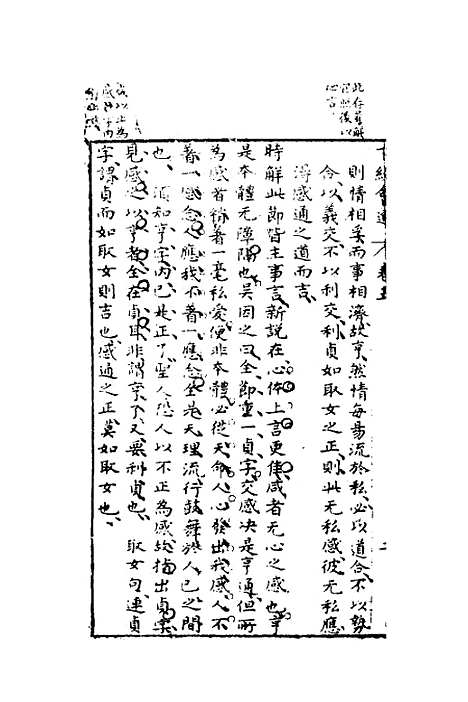 此存旨解
則情相孚而事相濟故亨然情每易流於私必以道合不以勢
合以義交不以利交利貞如取女之正則此无私感彼无私應
得感通之道而吉
時解此節皆主事言新說在心体上言更佳咸者无心之感也亨
是本體无障隔也吳因之曰全節重一貞字交感决是亨通但所
為感者稍著一毫私愛便非本體必從天命人心發出我感人不
着一感念人應我不着一應念全是天理流行鼓舞於人已之間
也須知亨字内已是正了聖人恐人以不正為感故指出貞字
見感之以亨者全在貞耳非謂亨了又要利貞也 取女句連貞
字謂貞而如取女則吉也感通之正莫如取女也